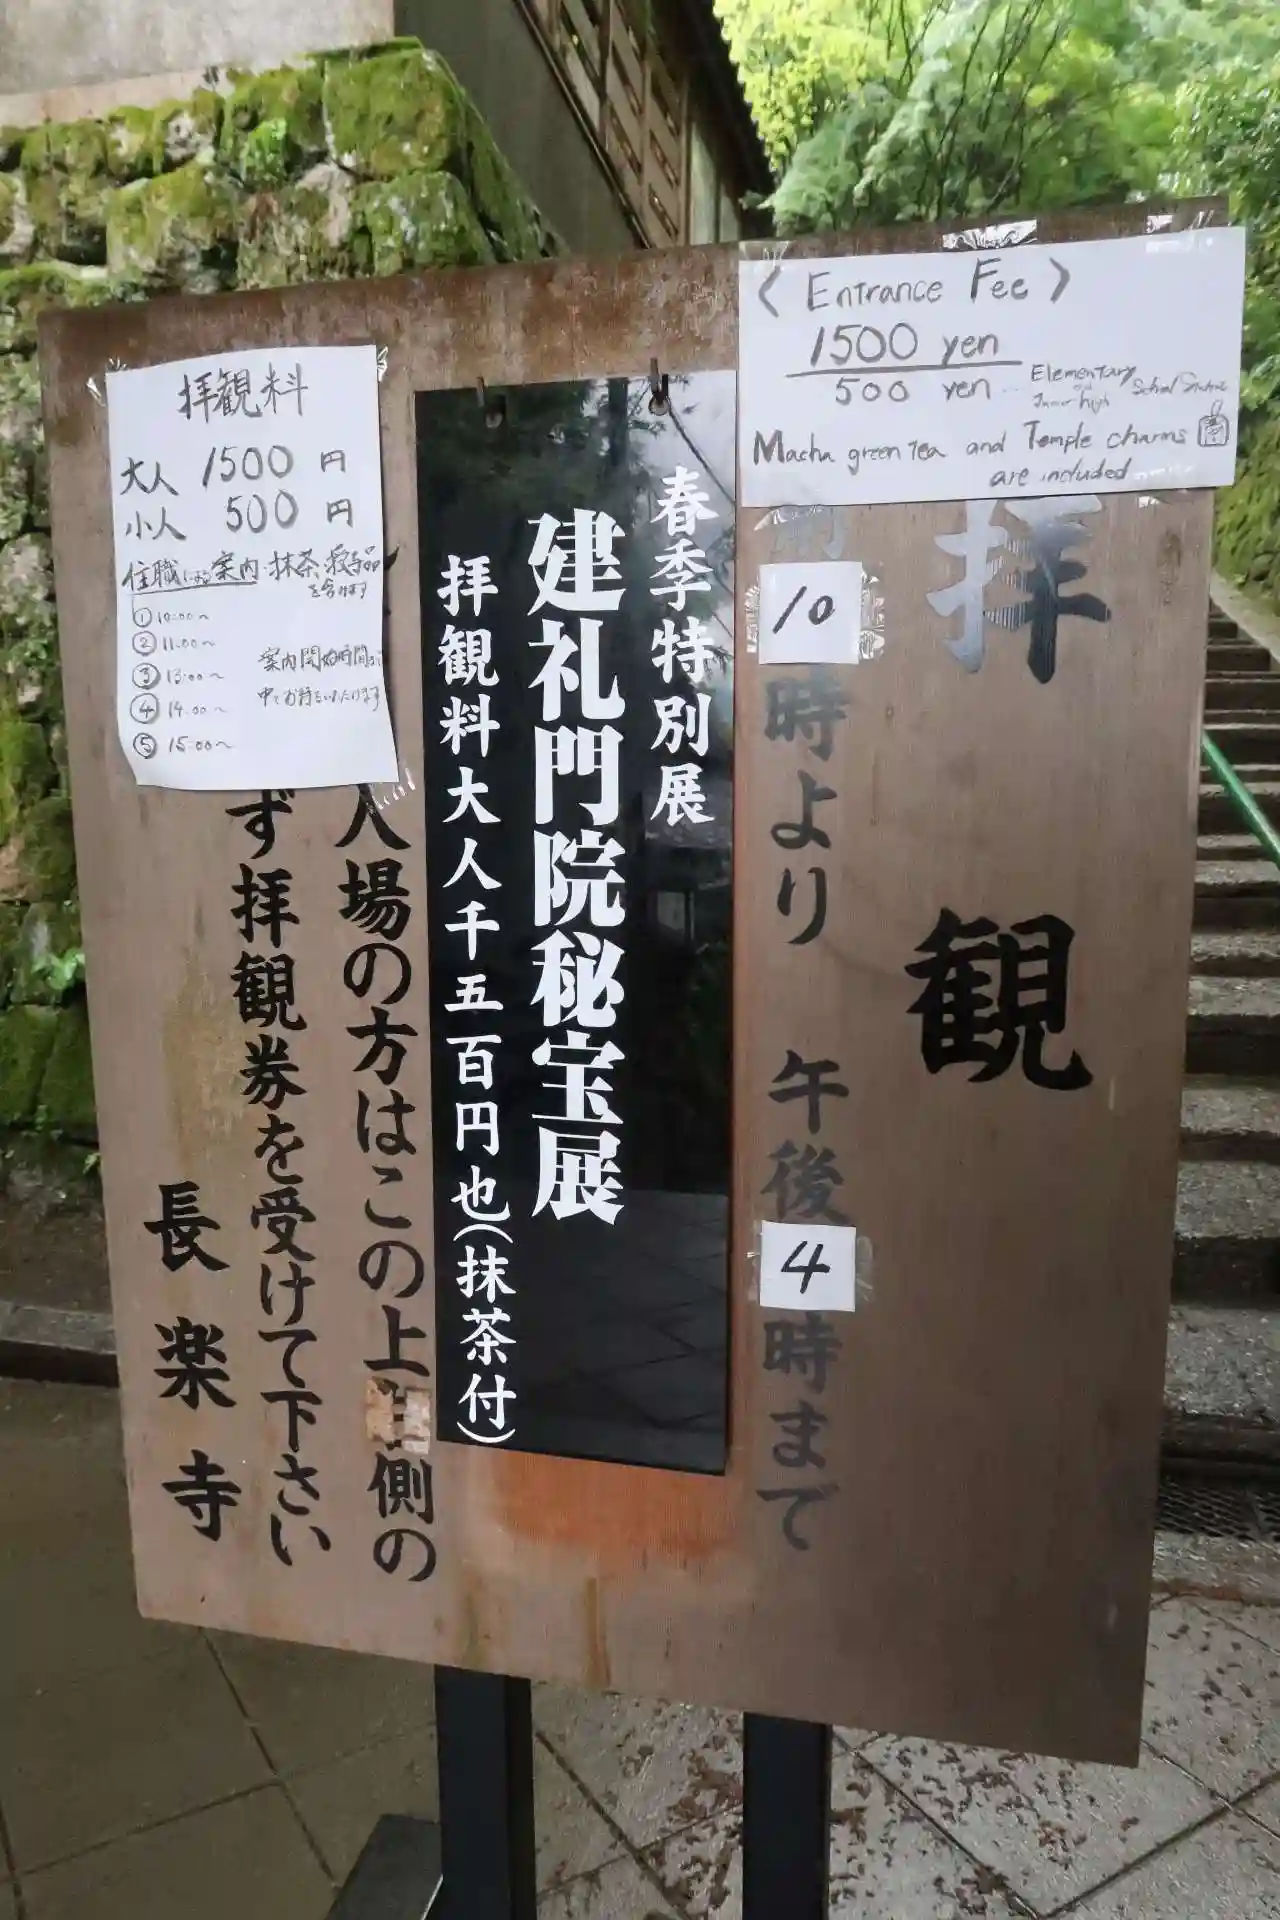 〈 Entrance Fee 〉
1500 yen
500 yen … Elementary and Junior high School
Macha green Tea and Temple charms
are included
拝観
10時より 午後4時まで
春季特別展
建礼門院秘宝展
拝観料大人千五百円也(抹茶付)
拝観料
大人 1500円
小人 500円
住職による案内・抹茶・授与品
を含みます
① 10:00~
② 11:00~
③ 13:00~
④ 14:00~
⑤ 15:00~
案内開始時間まで
中でお待ちいただけます
入場の方はこの上 側の
ず拝観券を受けて下さい
長楽寺